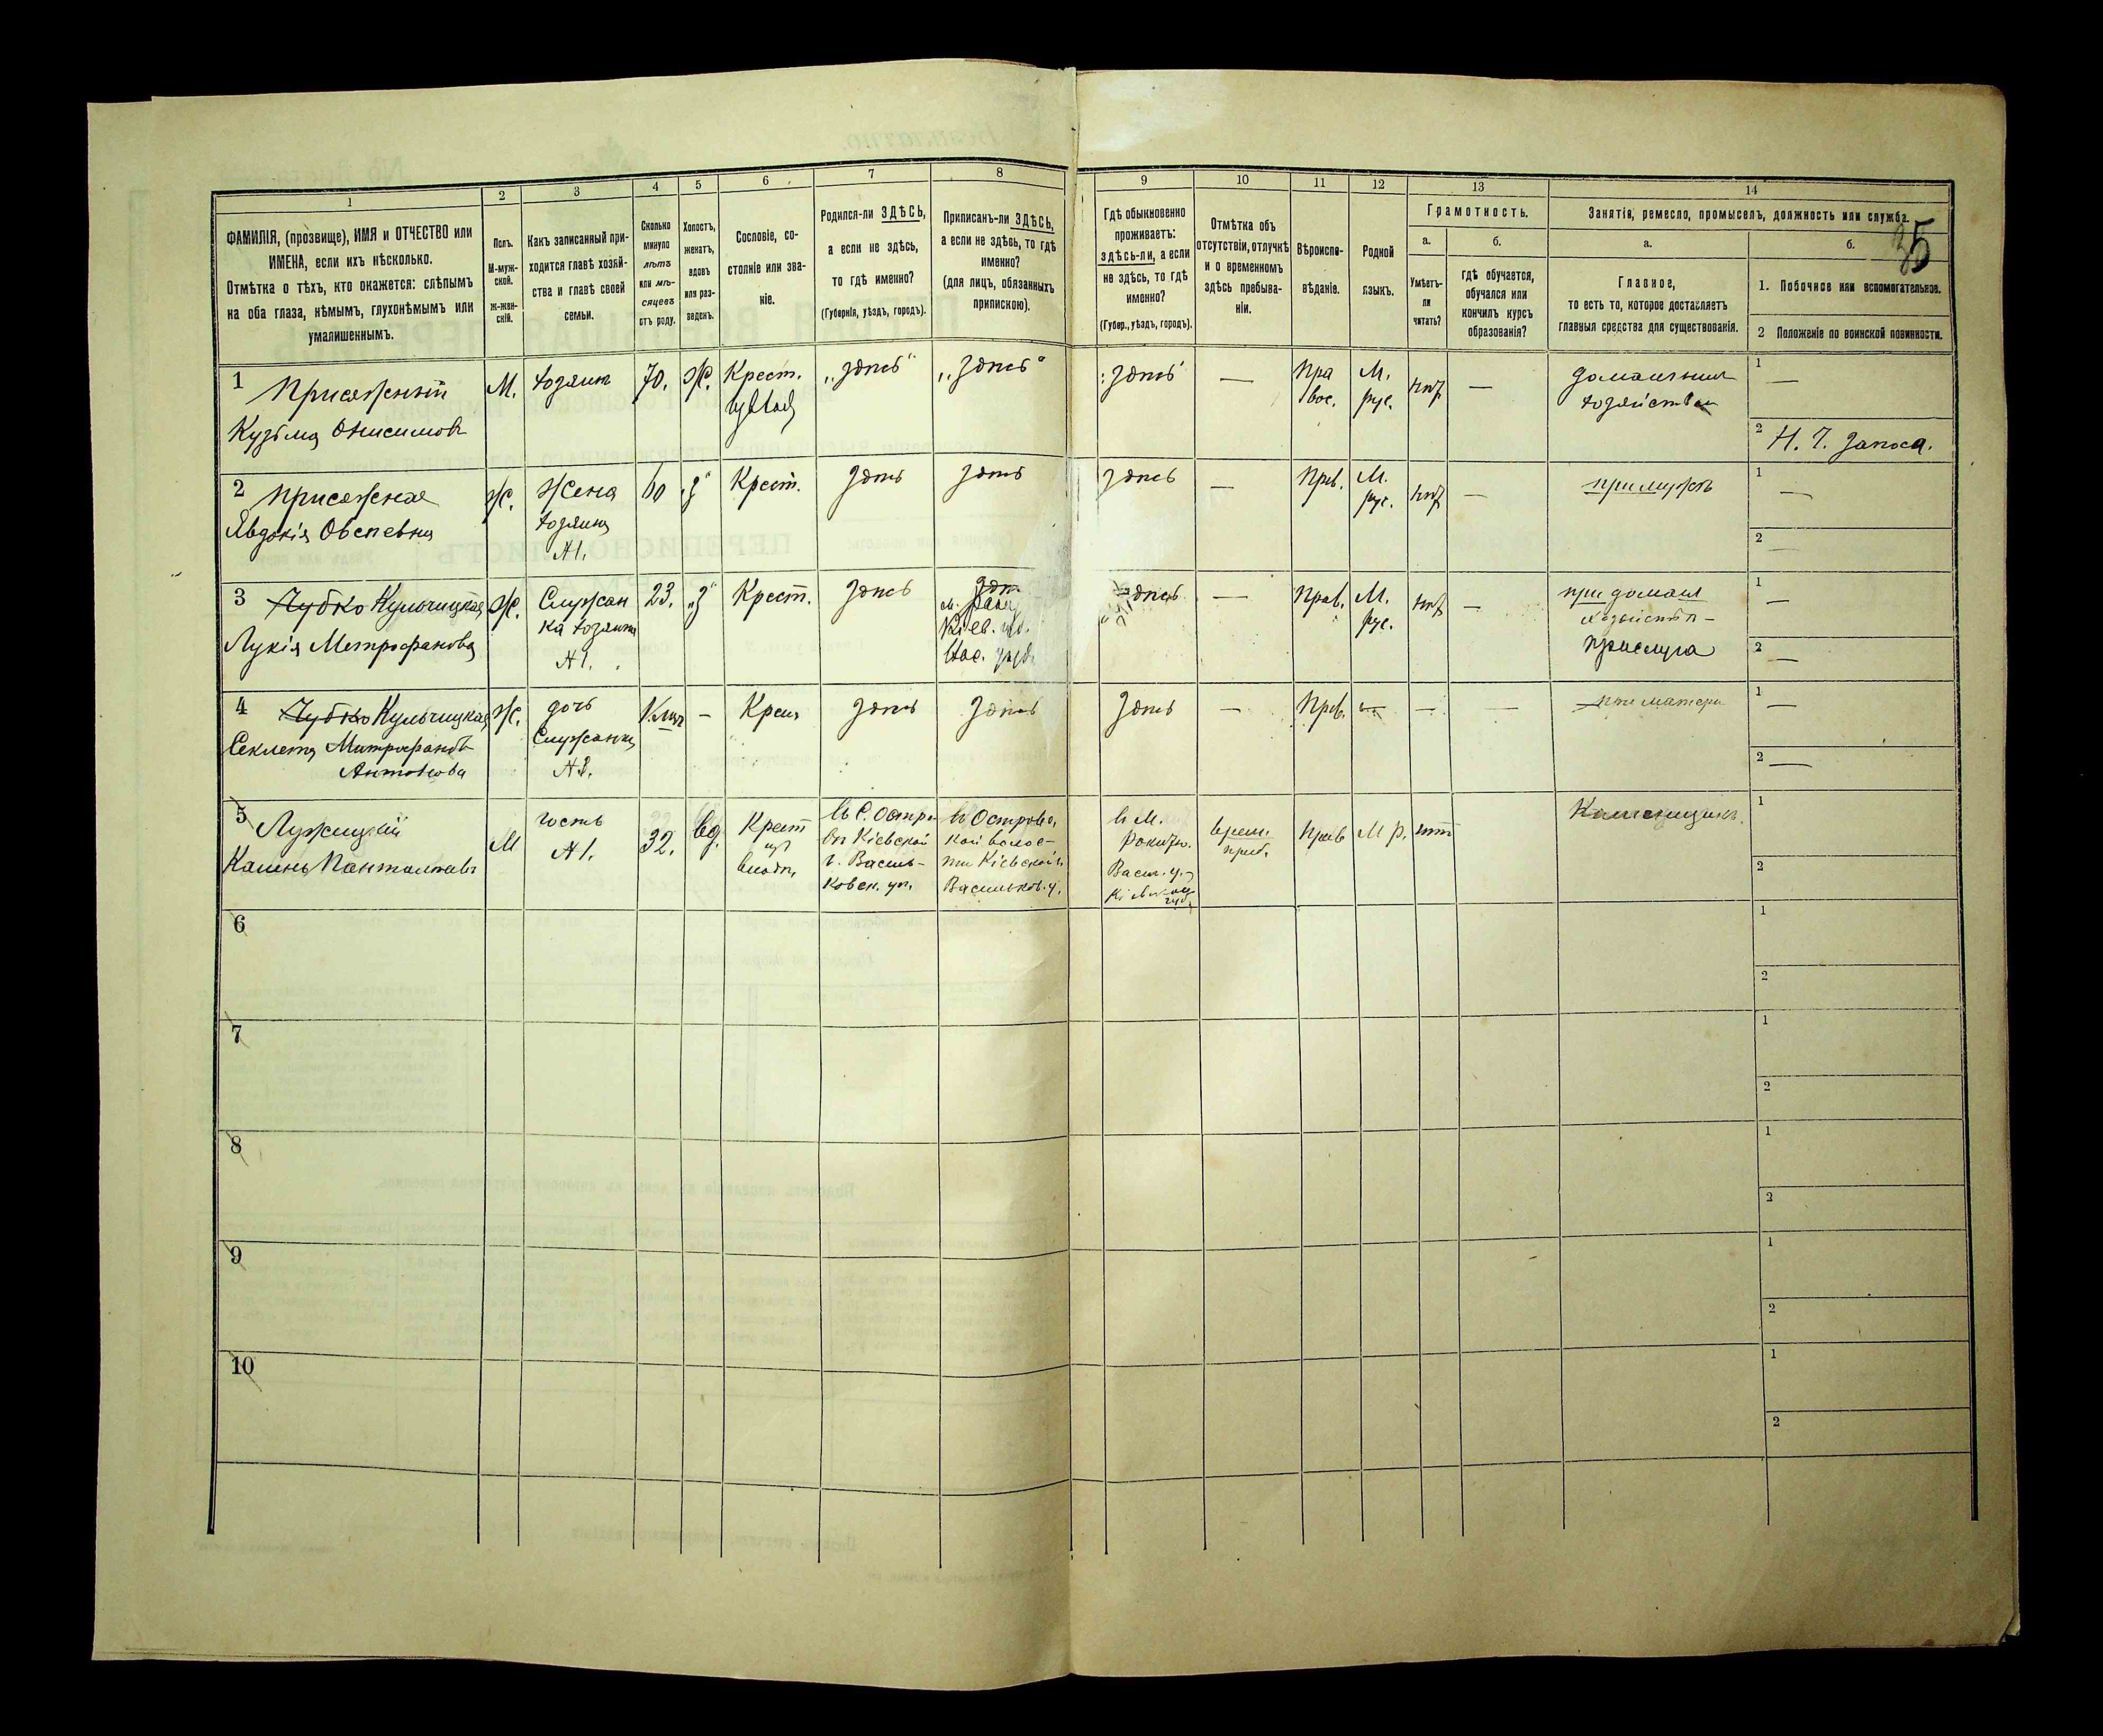 35
1
2
3
4
5
6
7
8
9
10
11
12
13
14
ФАМИЛІЯ, (прозвище), ИМЯ и ОТЧЕСТВО или
ИМЕНА, если ихъ нѣсколько.
Отмѣтка о тѣхъ, кто окажется: слѣпымъ
на оба глаза, нѣмымъ, глухонѣмымъ или
умалишеннымъ.
Полъ.
М-муж-
ской.
Ж-жен-
скій.
Какъ записанный при-
ходится главѣ хозяй-
ства и главѣ своей
семьи.
Сколько
минуло
лѣтъ
или мѣ-
сяцевъ
отъ роду.
Холостъ,
женатъ,
вдовъ
или раз-
веденъ.
Сословіе, со-
стояніе или зва-
ніе.
Родился-ли ЗДѢСЬ,
а если не здѣсь,
то гдѣ именно?
(Губернія, уѣздъ, городъ).
Приписанъ-ли ЗДѢСЬ,
а если не здѣсь, то гдѣ
именно?
(для лицъ, обязанныхъ
припискою).
Гдѣ обыкновенно
проживаетъ:
здѣсь-ли, а если
не здѣсь, то гдѣ
именно?
(Губер., уѣздъ, городъ).
Отмѣтка объ
отсутствіи, отлучкѣ
и о временномъ
здѣсь пребыва-
ніи.
Вѣроиспо-
вѣданіе.
Родной
языкъ.
Грамотность.
а.
Умѣетъ-
ли
читать?
б.
гдѣ обучается,
обучался или
кончилъ курсъ
образованія?
Занятіе, ремесло, промыселъ, должность или служба.
а.
Главное,
то есть то, которое доставляетъ
главныя средства для существованія.
б.
1. Побочное или вспомогательное.
2 Положеніе по воинской повинности.
1 Присяжный
Кузьма Онисимовъ
М.
хозяинъ
70.
Ж.
Крест.
„здѣсь“
„здѣсь“
здѣсь
—
Пра
вос.
М.
рус.
нѣт
—
домашнимъ
хозяйством
1 —
2 Н. Ч. запаса.
2 Присяжная
Явдокія Овсѣевна
Ж.
Жена
хозяина
№1.
60
„З“
Крест.
здѣсь
здѣсь
здѣсь
—
Прв.
М.
рус.
нѣт
—
при мужѣ
1 —
2 —
3 Чубко Кульчицкая
Лукія Метрофанова
Ж.
Служан
ка хозяина
№1.
23.
„З“
Крест.
здѣсь
здѣсь
Кіев.
здѣсь
—
Прав.
М.
рус.
нѣт
—
при домаш
хозяйствѣ –
прислуга
1 —
2 —
4 Чубко Кульчицкая
Секлета Митрофанов
Антонова
Ж.
дочь
Служанки
–
Крест
здѣсь
здѣсь
здѣсь
—
Прв.
—
—
—
при матери
1 —
2 —
5 Лужицкій
Пантелеймовъ
М
гость
№1.
32.
вд.
Крест
въ С. Остро-
вѣ Кіевской
г. Василь-
ковск. уѣ.
въ Островс.
кой волос-
ти Кіевской г.
Васильков. у.
въ М.
Рокитн.
Васил. у.
врем.
преб.
Прав
М р.
нѣт
Каменщикъ.
1
2
6
1
2
7
1
2
8
1
2
9
1
2
10
1
2